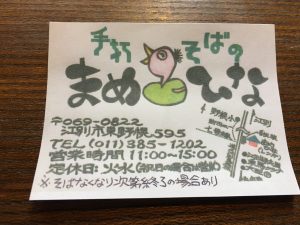 手打そばの
まめひな
〒069-0822
江別市東野幌595
TEL (011)385-1202
営業時間 11:00~15:00
定休日:火水(祝日の場合は営業)
※そばなくなり次第終了の場合あり
野幌小
江別